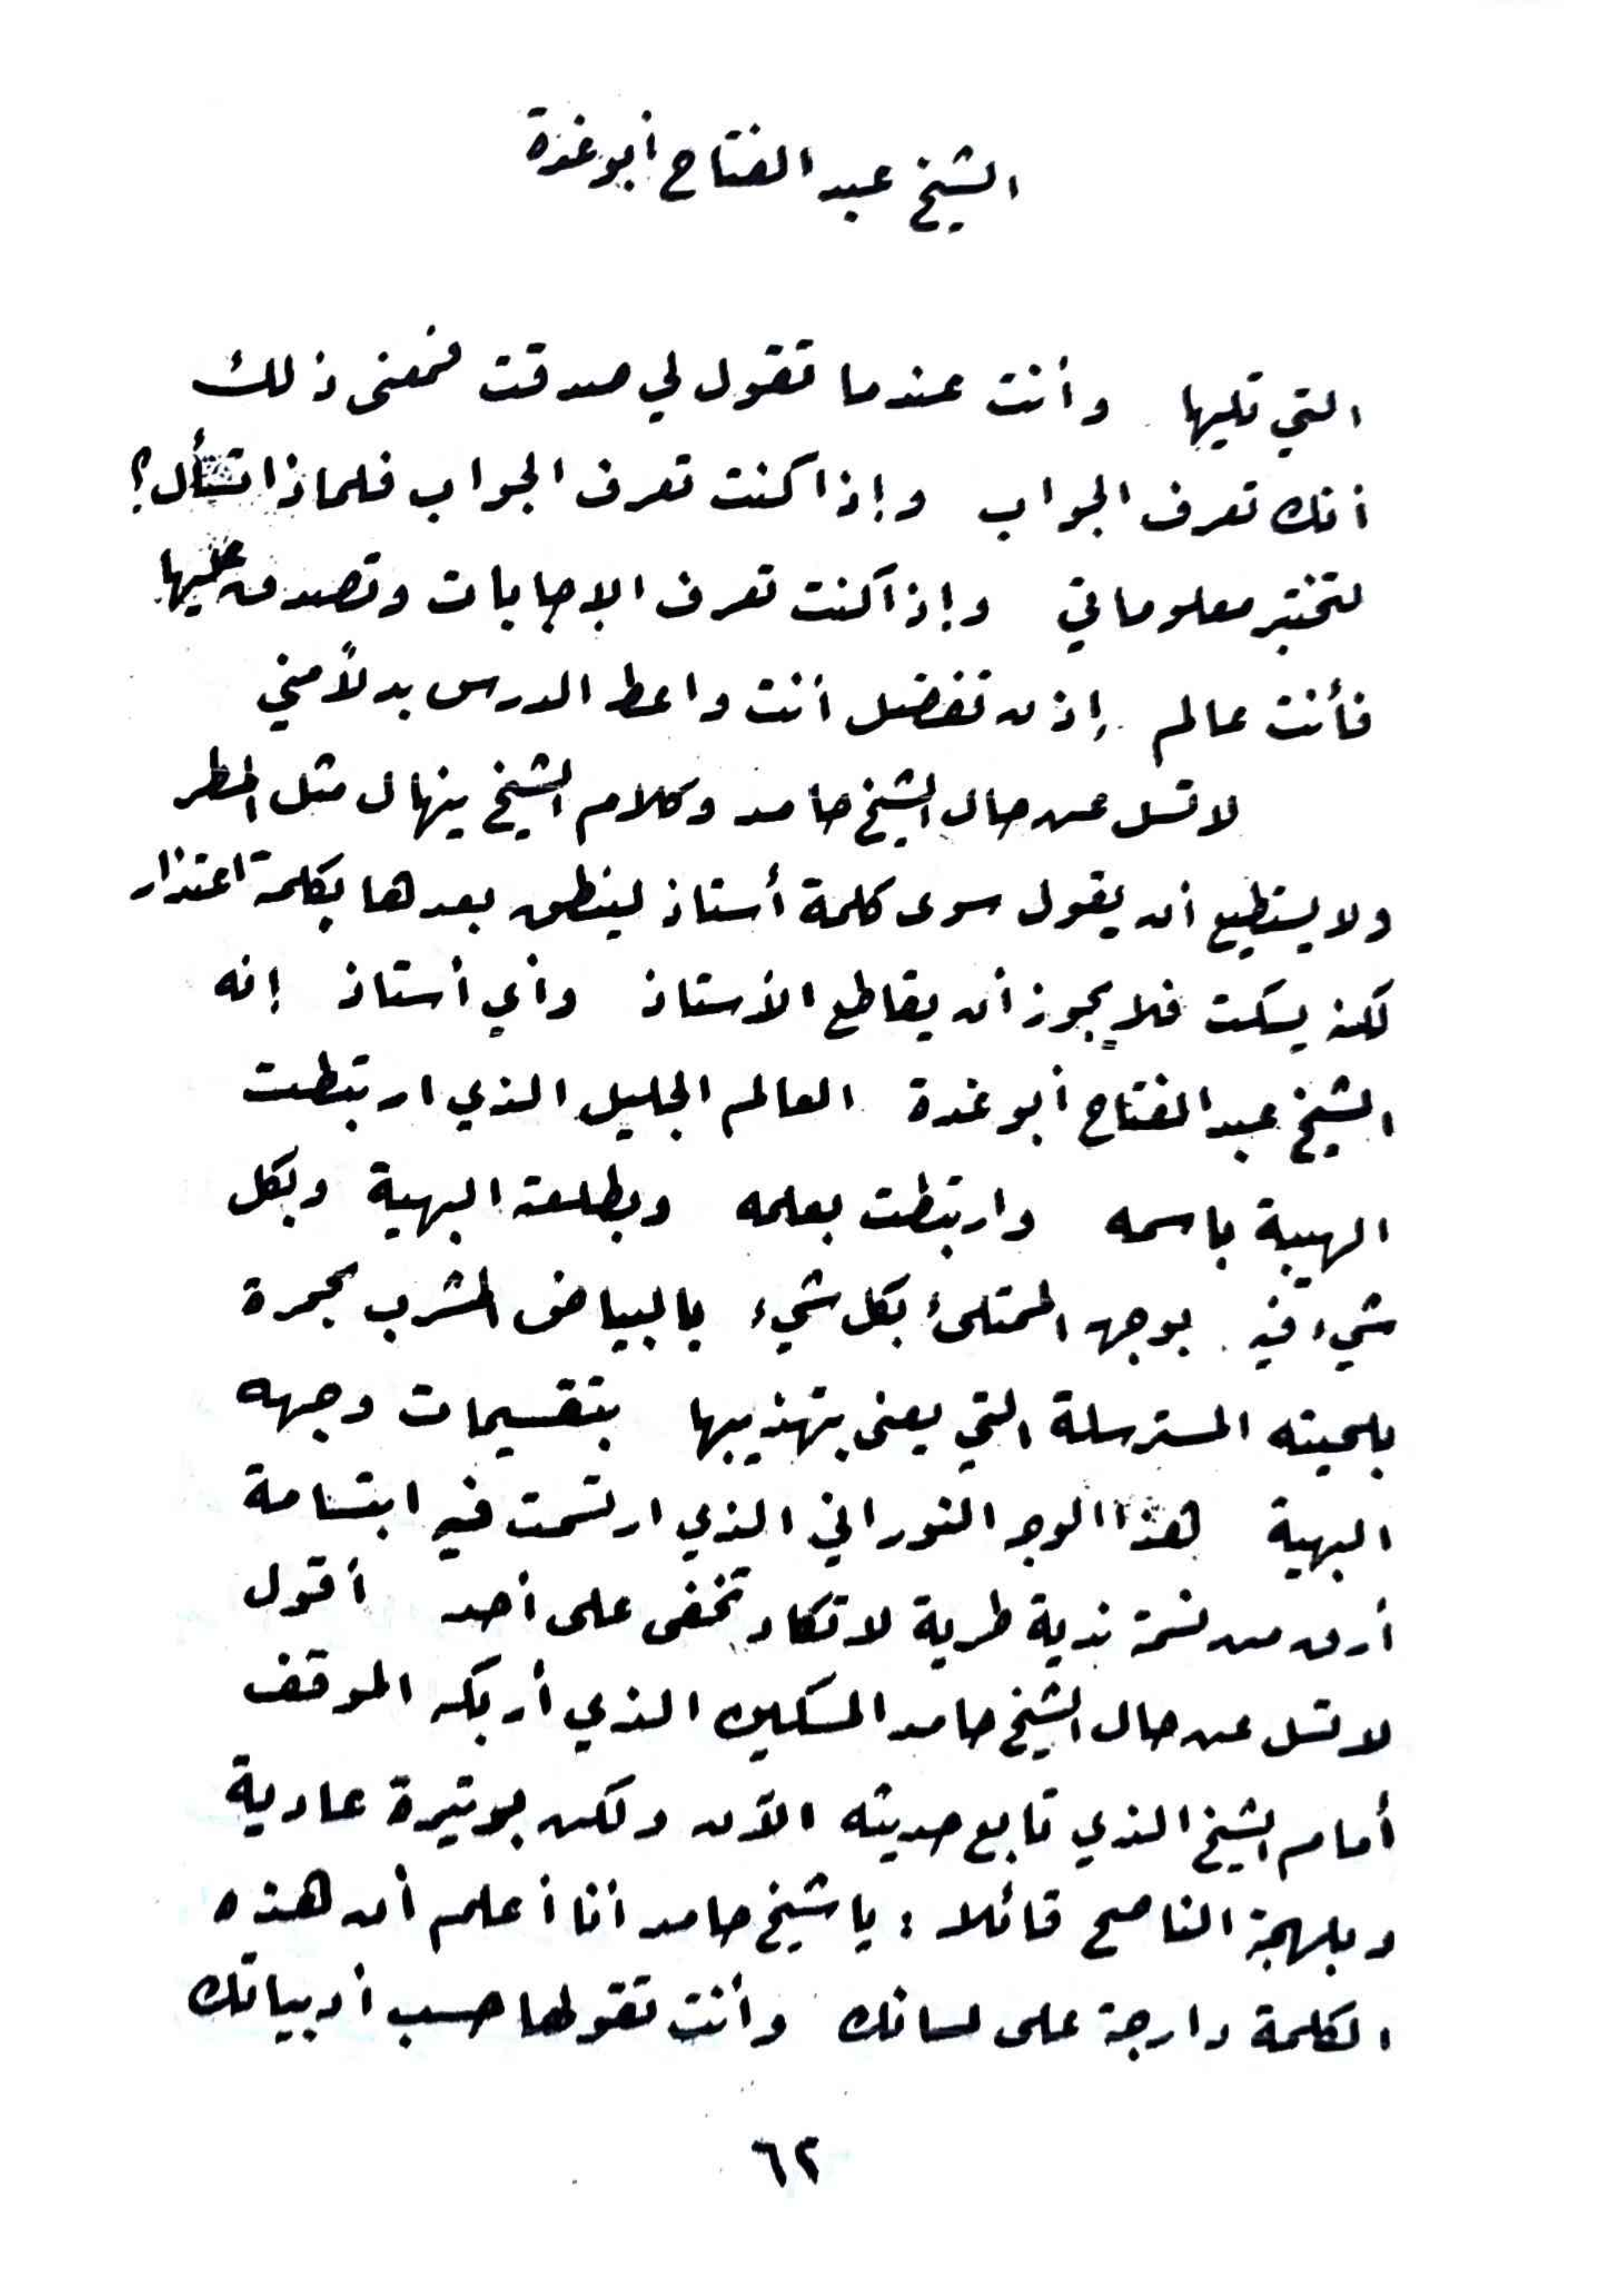 الشيخ عبد الفتاح أبو غدة
التي تليها وأنت عندما تقول لي صدقت فمعنى ذلك
أنك تعرف الجواب وإذا كنت تعرف الجواب فلماذا تسأل؟
لتختبر معلوماتي وإذا كنت تعرف الإجابات وتصدق عليها
فأنت عالم إذن تفضل أنت واعط الدرس بدلاً مني
لا تسل عن حال الشيخ حامد وكلام الشيخ ينهال مثل المطر
ولا يستطيع أن يقول سوى كلمة أستاذ لينطق بعدها بكلمة اعتذار
لكنه يسكت فلا يجوز أن يقاطع الأستاذ وأي أستاذ إنه
الشيخ عبد الفتاح أبو غدة العالم الجليل الذي ارتبطت
الهيبة باسمه وارتبطت بعلمه وبطلعته البهية وبكل
شيء فيه بوجهه الممتلئ بكل شيء بالبياض المشرب بحمرة
بلحيته المسترسلة التي يعنى بتهذيبها بتقسيمات وجهه
البهية هذا الوجه النوراني الذي ارتسمت فيه ابتسامة
أرق من نسمة ندية طرية لا تكاد تخفى على أحد أقول
لا تسل عن حال الشيخ حامد المسكين الذي أربكه الموقف
أمام الشيخ الذي تابع حديثه الآن ولكن بوتيرة عادية
وبلهجة الناصح قائلا : يا شيخ حامد أنا أعلم أن هذه
الكلمة دارجة على لسانك وأنت تقولها حسب أدبياتك
٦٢